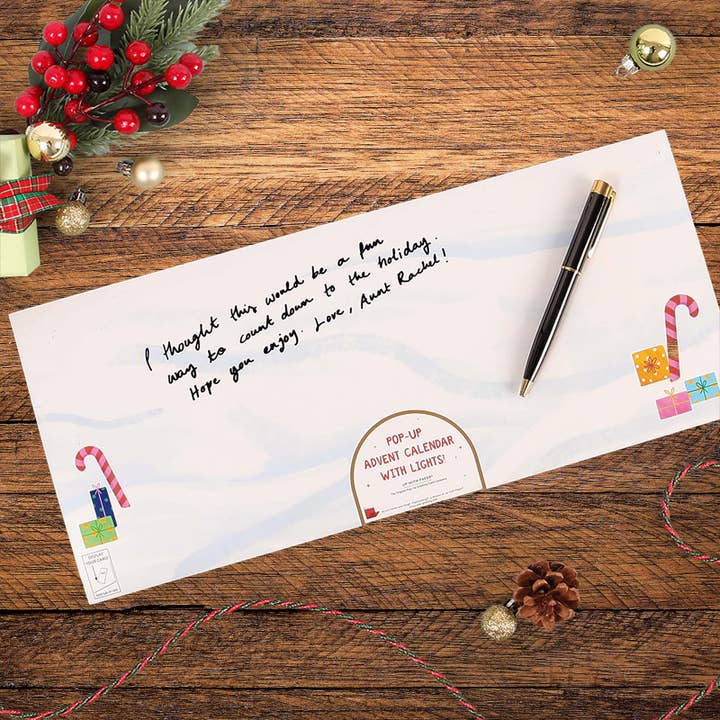 I thought this would be a fun
way to count down to the holiday.
Hope you enjoy. Love, Aunt Rachel!
POP-UP
ADVENT CALENDAR
WITH LIGHTS!
UP WITH PAPER
The Original Pop-Up Greeting Card Company
DISPLAY
YOUR CARD